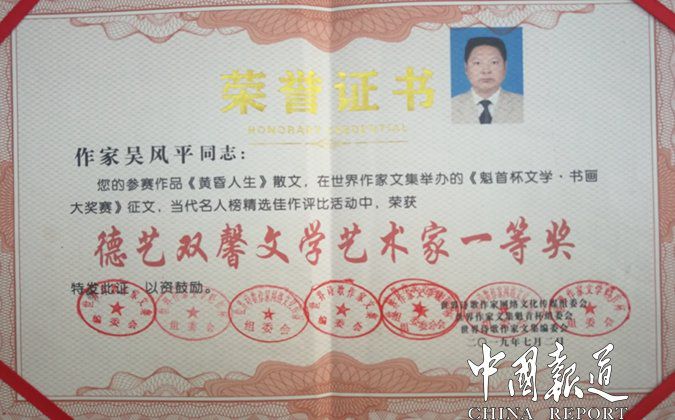 荣誉证书
HONORARY CREDENTIAL
作家吴风平同志：
您的参赛作品《黄昏人生》散文，在世界作家文集举办的《魁首杯文学·书画
大奖赛》征文，当代名人榜精选佳作评比活动中，荣获
德艺双馨文学艺术家一等奖
特发此证，以资鼓励。
编委会
组委会
组委会
组委会
编委会
世界诗歌作家网络文化传媒组委会
世界作家文集魁首杯组委会
世界诗歌作家文集编委会
二〇一九年七月
中國報道
CHINA REPORT